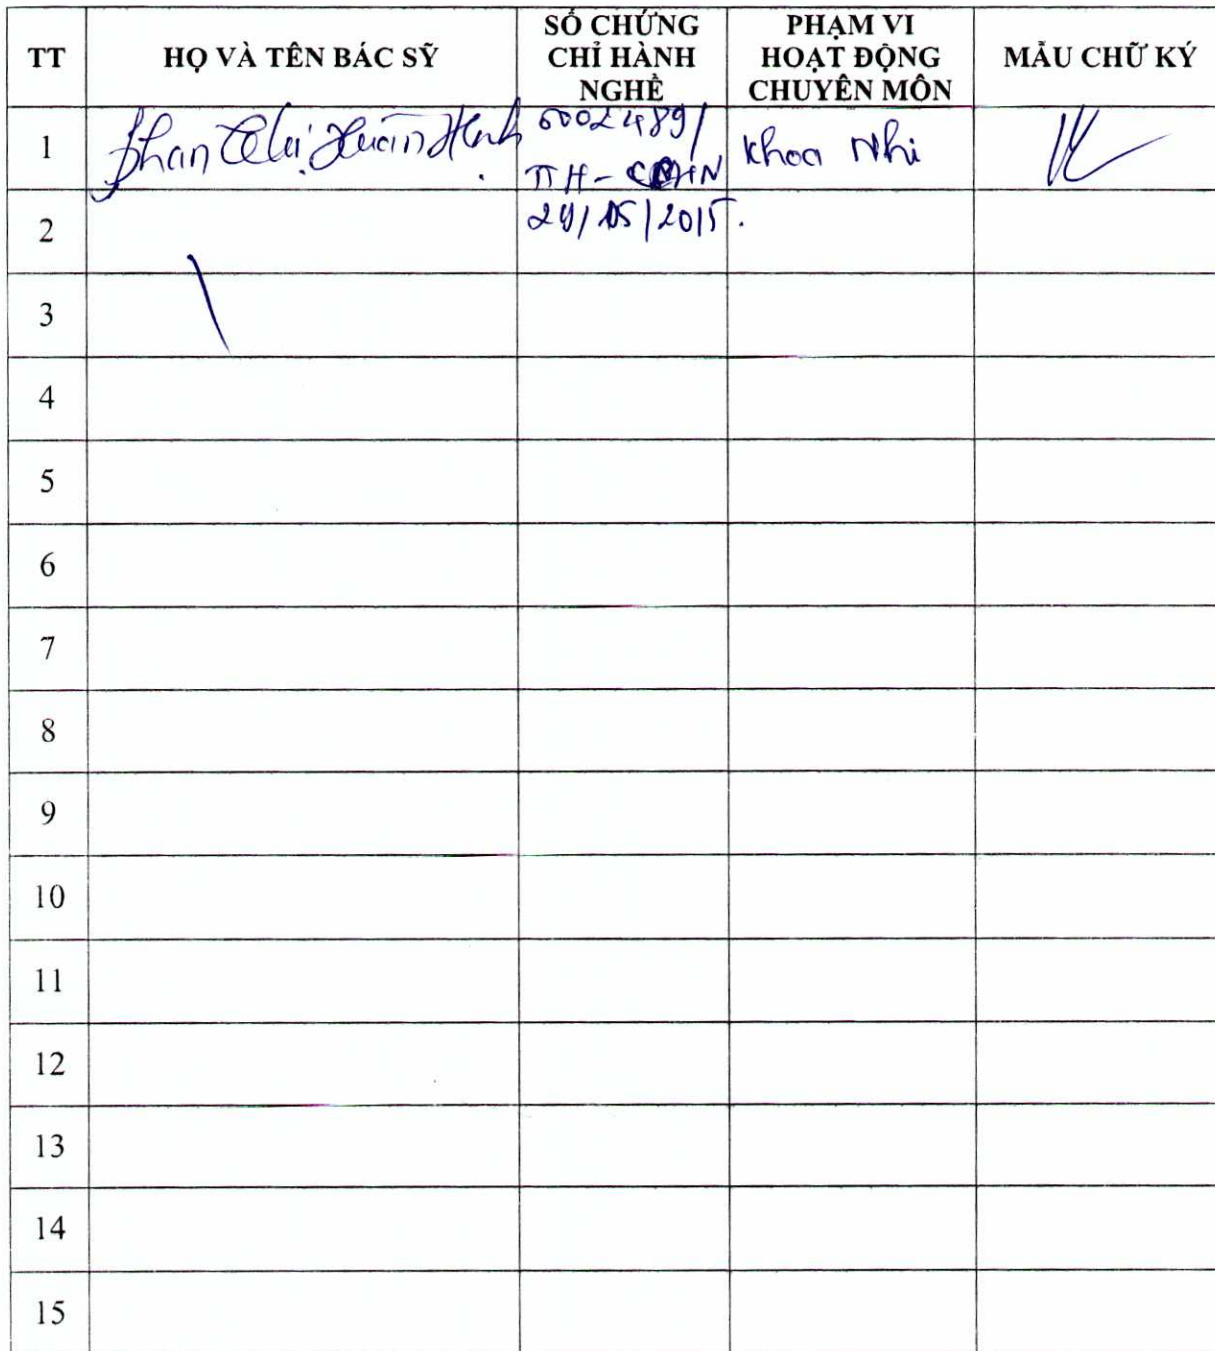 TT HỌ VÀ TÊN BÁC SỸ SỐ CHỨNG CHỈ HÀNH NGHỀ PHẠM VI HOẠT ĐỘNG CHUYÊN MÔN MẪU CHỮ KÝ
1 Phan Thị Xuân 0002489/ Khoa Nhi
TTH - CCHN
2 29/05/2015.
3
4
5
6
7
8
9
10
11
12
13
14
15